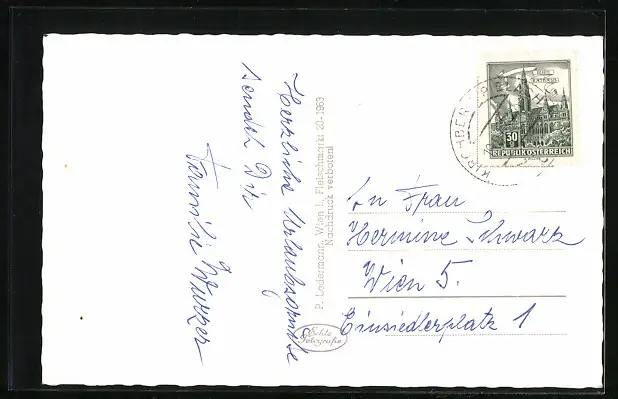 Herzliche Urlaubsgrüße
sendet Dir
Familie Wurzer
P. Ledermann, Wien I, Fleischmarkt 20-1963
Nachdruck verboten!
Echte
Fotografie
WIEN
RATHAUS
30
REPUBLIK ÖSTERREICH
An Frau
Hermine Schwarz
Wien 5.
Einsiedlerplatz 1